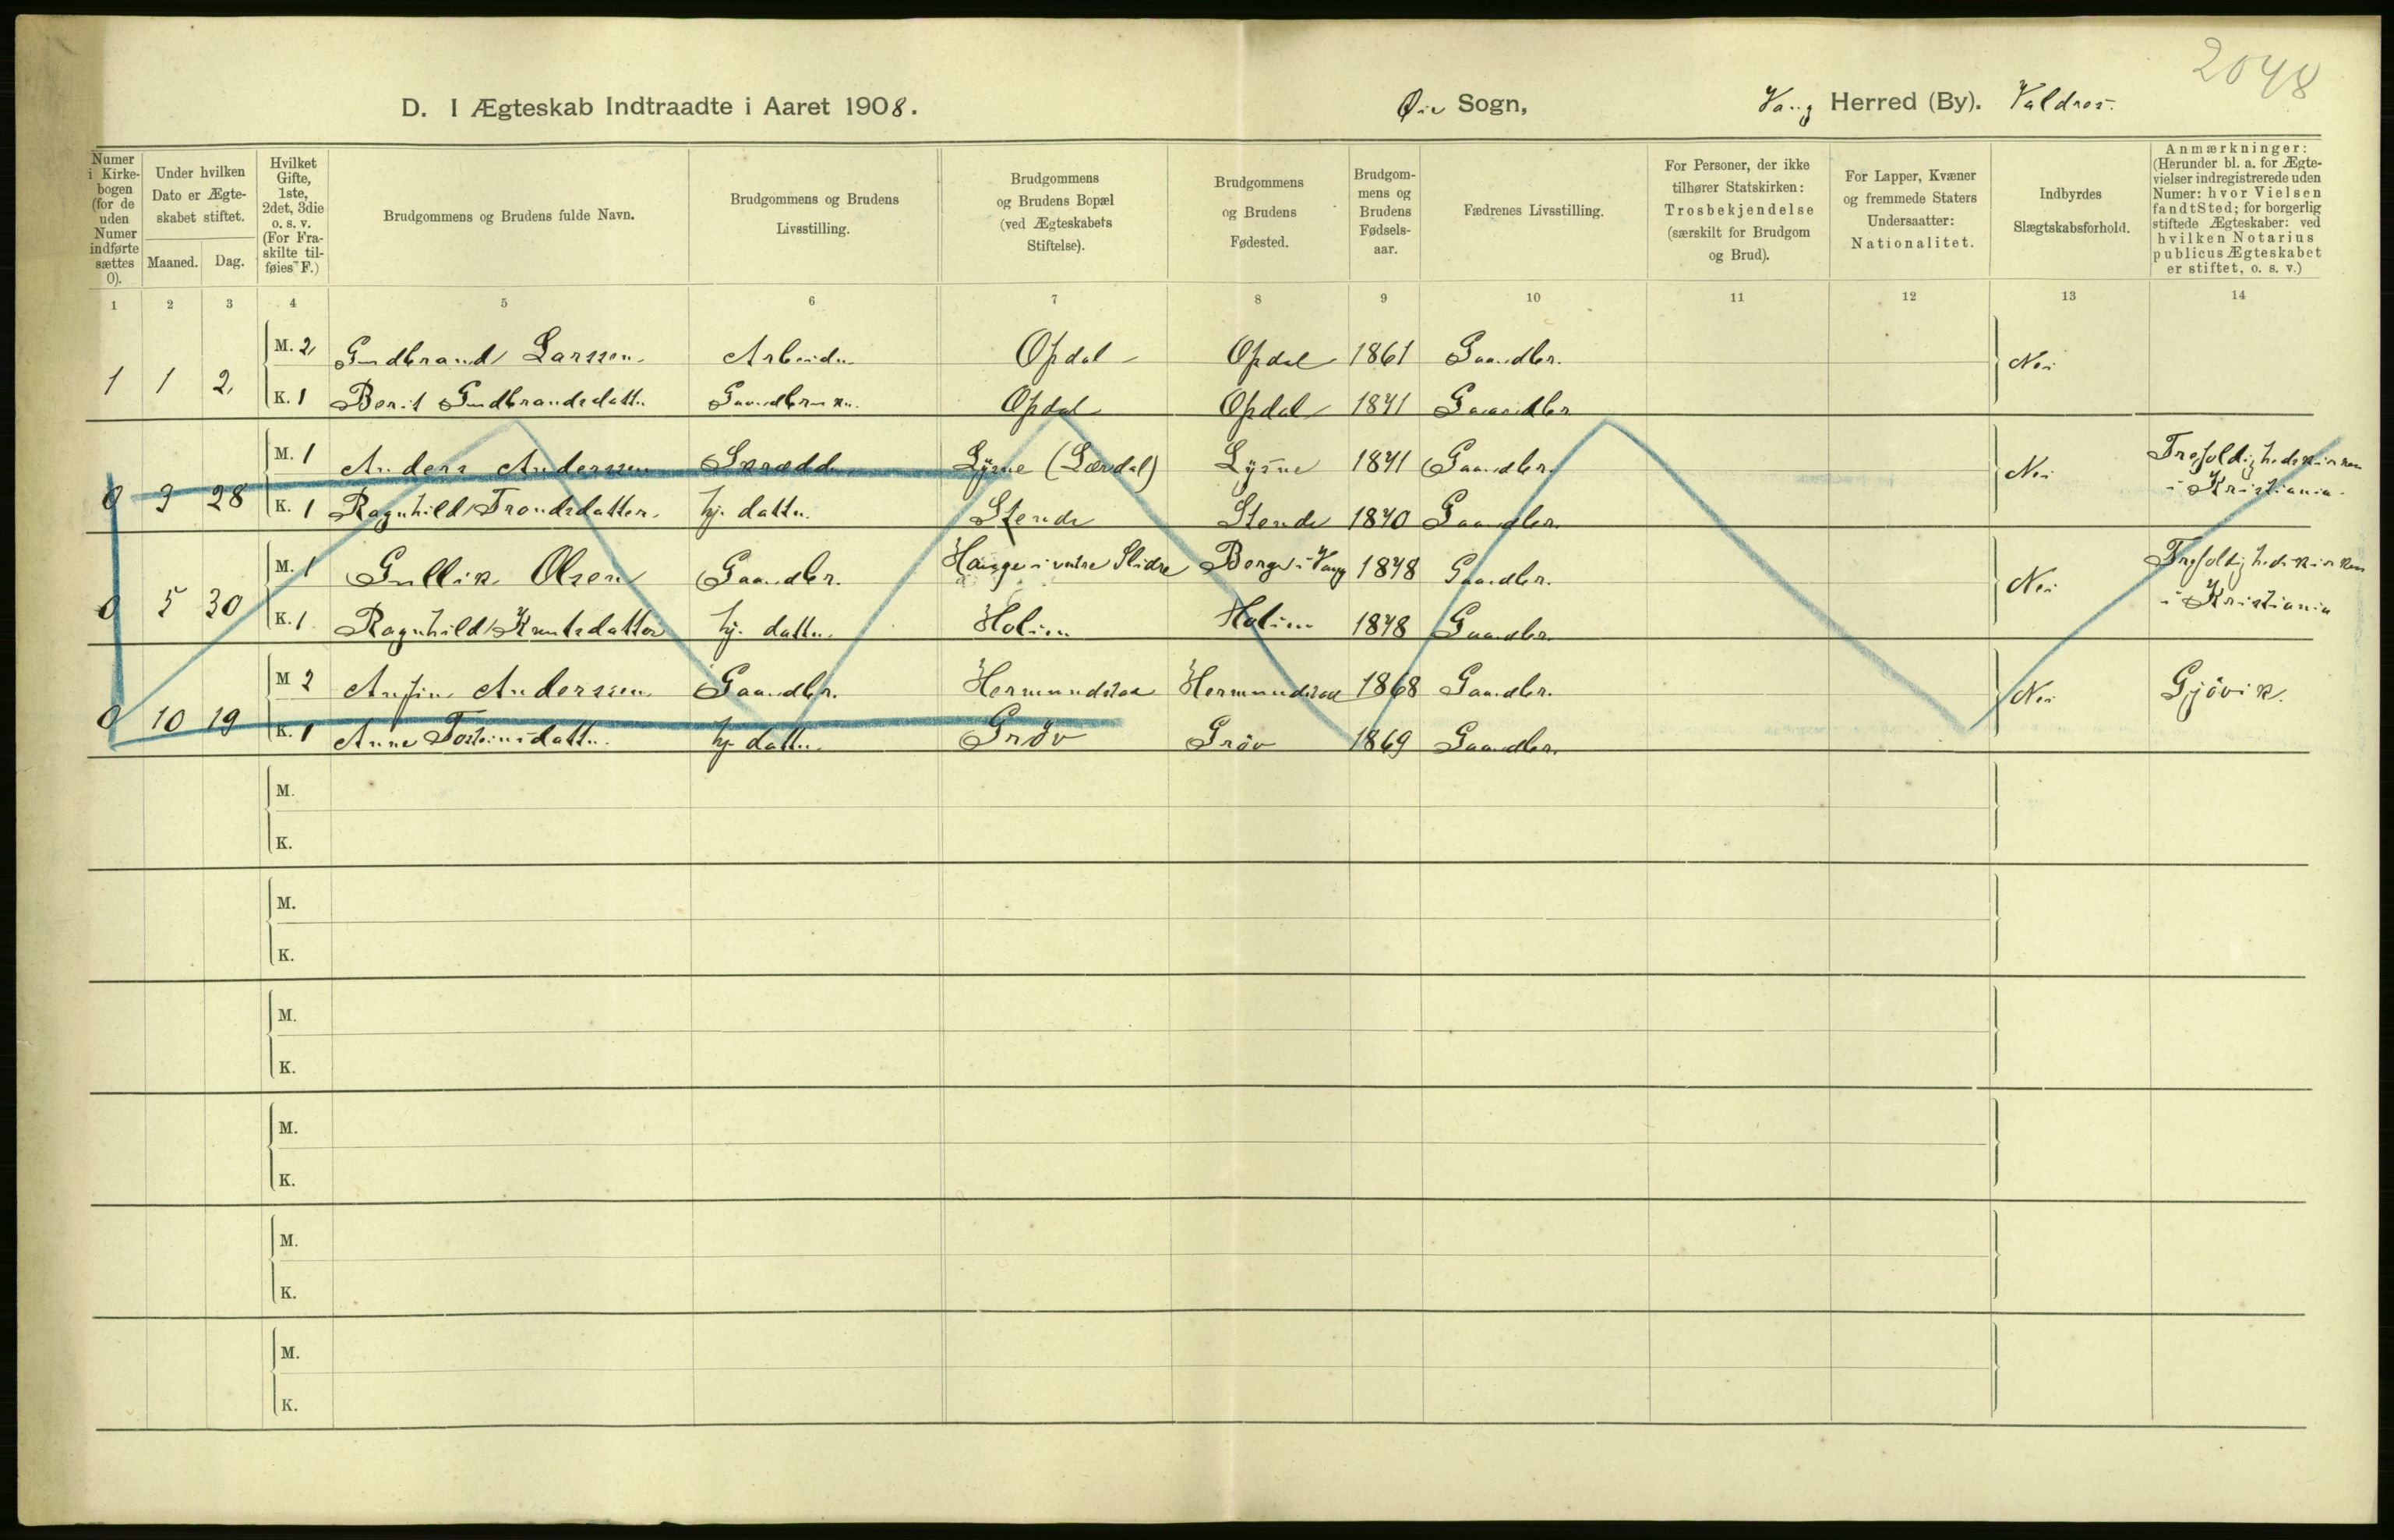 2048
D. I Ægteskab Indtraadte i Aaret 1908. Øie Sogn, Vang Herred (By). Valdres.
Numer i Kirkebogen (for de uden Numer indførte sættes 0).
Under hvilken Dato er Ægteskabet stiftet.
Maaned. Dag.
Hvilket Gifte, 1ste, 2det, 3die o. s. v. (For Fraskilte tilføies "F.)
Brudgommens og Brudens fulde Navn.
Brudgommens og Brudens Livsstilling.
Brudgommens og Brudens Bopæl (ved Ægteskabets Stiftelse).
Brudgommens og Brudens Fødested.
Brudgommens og Brudens Fødselsaar.
Fædrenes Livsstilling.
For Personer, der ikke tilhører Statskirken: Trosbekjendelse (særskilt for Brudgom og Brud).
For Lapper, Kvæner og fremmede Staters Undersaatter: Nationalitet.
Indbyrdes Slægtskabsforhold.
Anmærkninger: (Herunder bl. a. for Ægtevielser indregistrerede uden Numer: hvor Vielsen fandt Sted; for borgerlig stiftede Ægteskaber: ved hvilken Notarius publicus Ægteskabet er stiftet, o. s. v.)
1 2 3 4 5 6 7 8 9 10 11 12 13 14
M. 2 Gudbrand Larssen Arbeider Opdal Opdal 1861 Gaardbr.
1 1 2 Nei
K. 1 Berit Gudbrandsdatter Opdal Opdal 1841 Gaardbr
M. 1 Anders Anderssen Skrædder Lysne (Lærdal) Lysne 1841 Gaardbr. Trefoldighedskirken
0 3 28 Nei i Kristiania.
K. 1 Ragnhild Trondsdatter hj. datter Stende Stende 1840 Gaardbr.
M. 1 Gullik Olsen Gaardbr. Hauge i vestre Slidre Berge i Vang 1848 Gaardbr. Trefoldighedskirken
0 5 30 Nei i Kristiania
K. 1 Ragnhild Knutsdatter hj. datter Holien Holien 1848 Gaardbr.
M 2 Anfin Anderssen Gaardbr. Hermundstad Hermundstad 1868 Gaardbr. Gjövik.
0 10 19 Nei
K. 1 Anne Tosteinsdatter hj. datter Gröv Gröv 1869 Gaardbr.
M.
K.
M.
K.
M.
K.
M.
K.
M.
K.
M.
K.